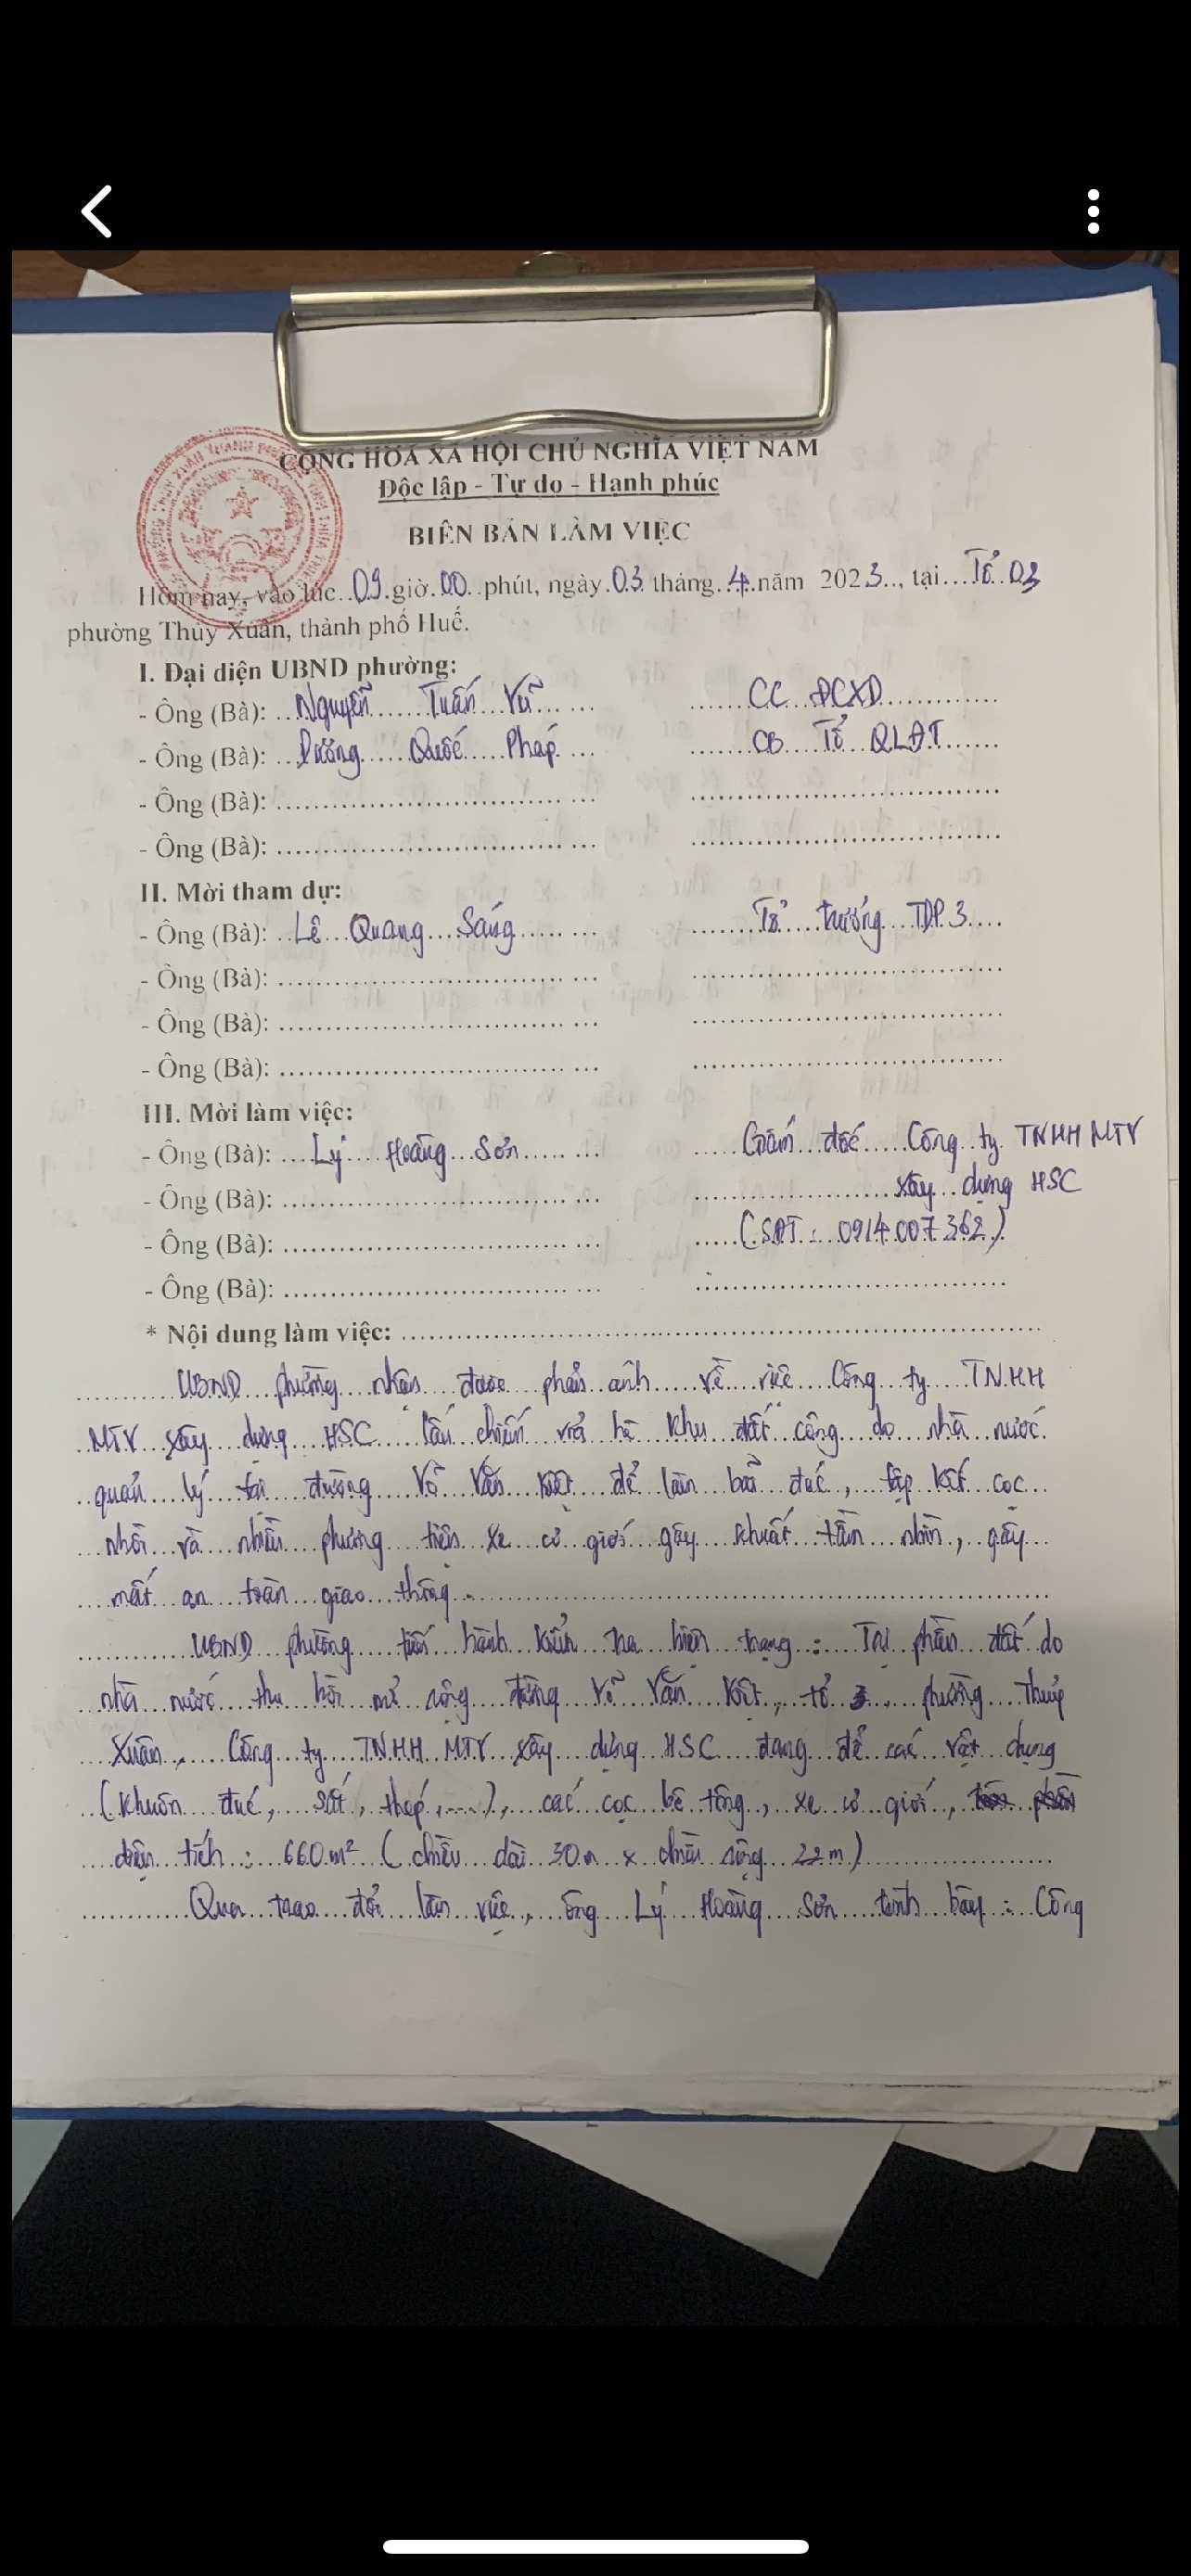 CỘNG HOÀ XÃ HỘI CHỦ NGHĨA VIỆT NAM
Độc lập - Tự do - Hạnh phúc
BIÊN BẢN LÀM VIỆC
Hôm nay, vào lúc 09 giờ 00 phút, ngày 03 tháng 4 năm 2023, tại Tổ 03
phường Thủy Xuân, thành phố Huế.
I. Đại diện UBND phường:
- Ông (Bà): Nguyễn Tuấn Vũ CC ĐCXD
- Ông (Bà): Dương Quốc Pháp CB Tổ QLĐT
- Ông (Bà):
- Ông (Bà):
II. Mời tham dự:
- Ông (Bà): Lê Quang Sáng Tổ trưởng TDP 3
- Ông (Bà):
- Ông (Bà):
- Ông (Bà):
III. Mời làm việc:
- Ông (Bà): Lý Hoàng Sơn Giám đốc Công ty TNHH MTV
- Ông (Bà): xây dựng HSC
- Ông (Bà): (SĐT: 0914.007.362)
- Ông (Bà):
* Nội dung làm việc:
UBND phường nhận được phản ánh về việc Công ty TNHH
MTV xây dựng HSC lấn chiếm vỉa hè khu đất công do nhà nước
quản lý tại đường Võ Văn Kiệt để làm bãi đúc, tập kết cọc
nhồi và nhiều phương tiện xe cơ giới gây khuất tầm nhìn, gây
mất an toàn giao thông.
UBND phường tiến hành kiểm tra hiện trạng: Tại phần đất do
nhà nước thu hồi mở rộng đường Võ Văn Kiệt, tổ 3, phường Thuỷ
Xuân, Công ty TNHH MTV xây dựng HSC đang để các vật dụng
(khuôn đúc, sắt, thép,....), các cọc bê tông, xe cơ giới,
diện tích: 660m² (chiều dài 30m x chiều rộng 22m)
Qua trao đổi làm việc, ông Lý Hoàng Sơn trình bày: Công